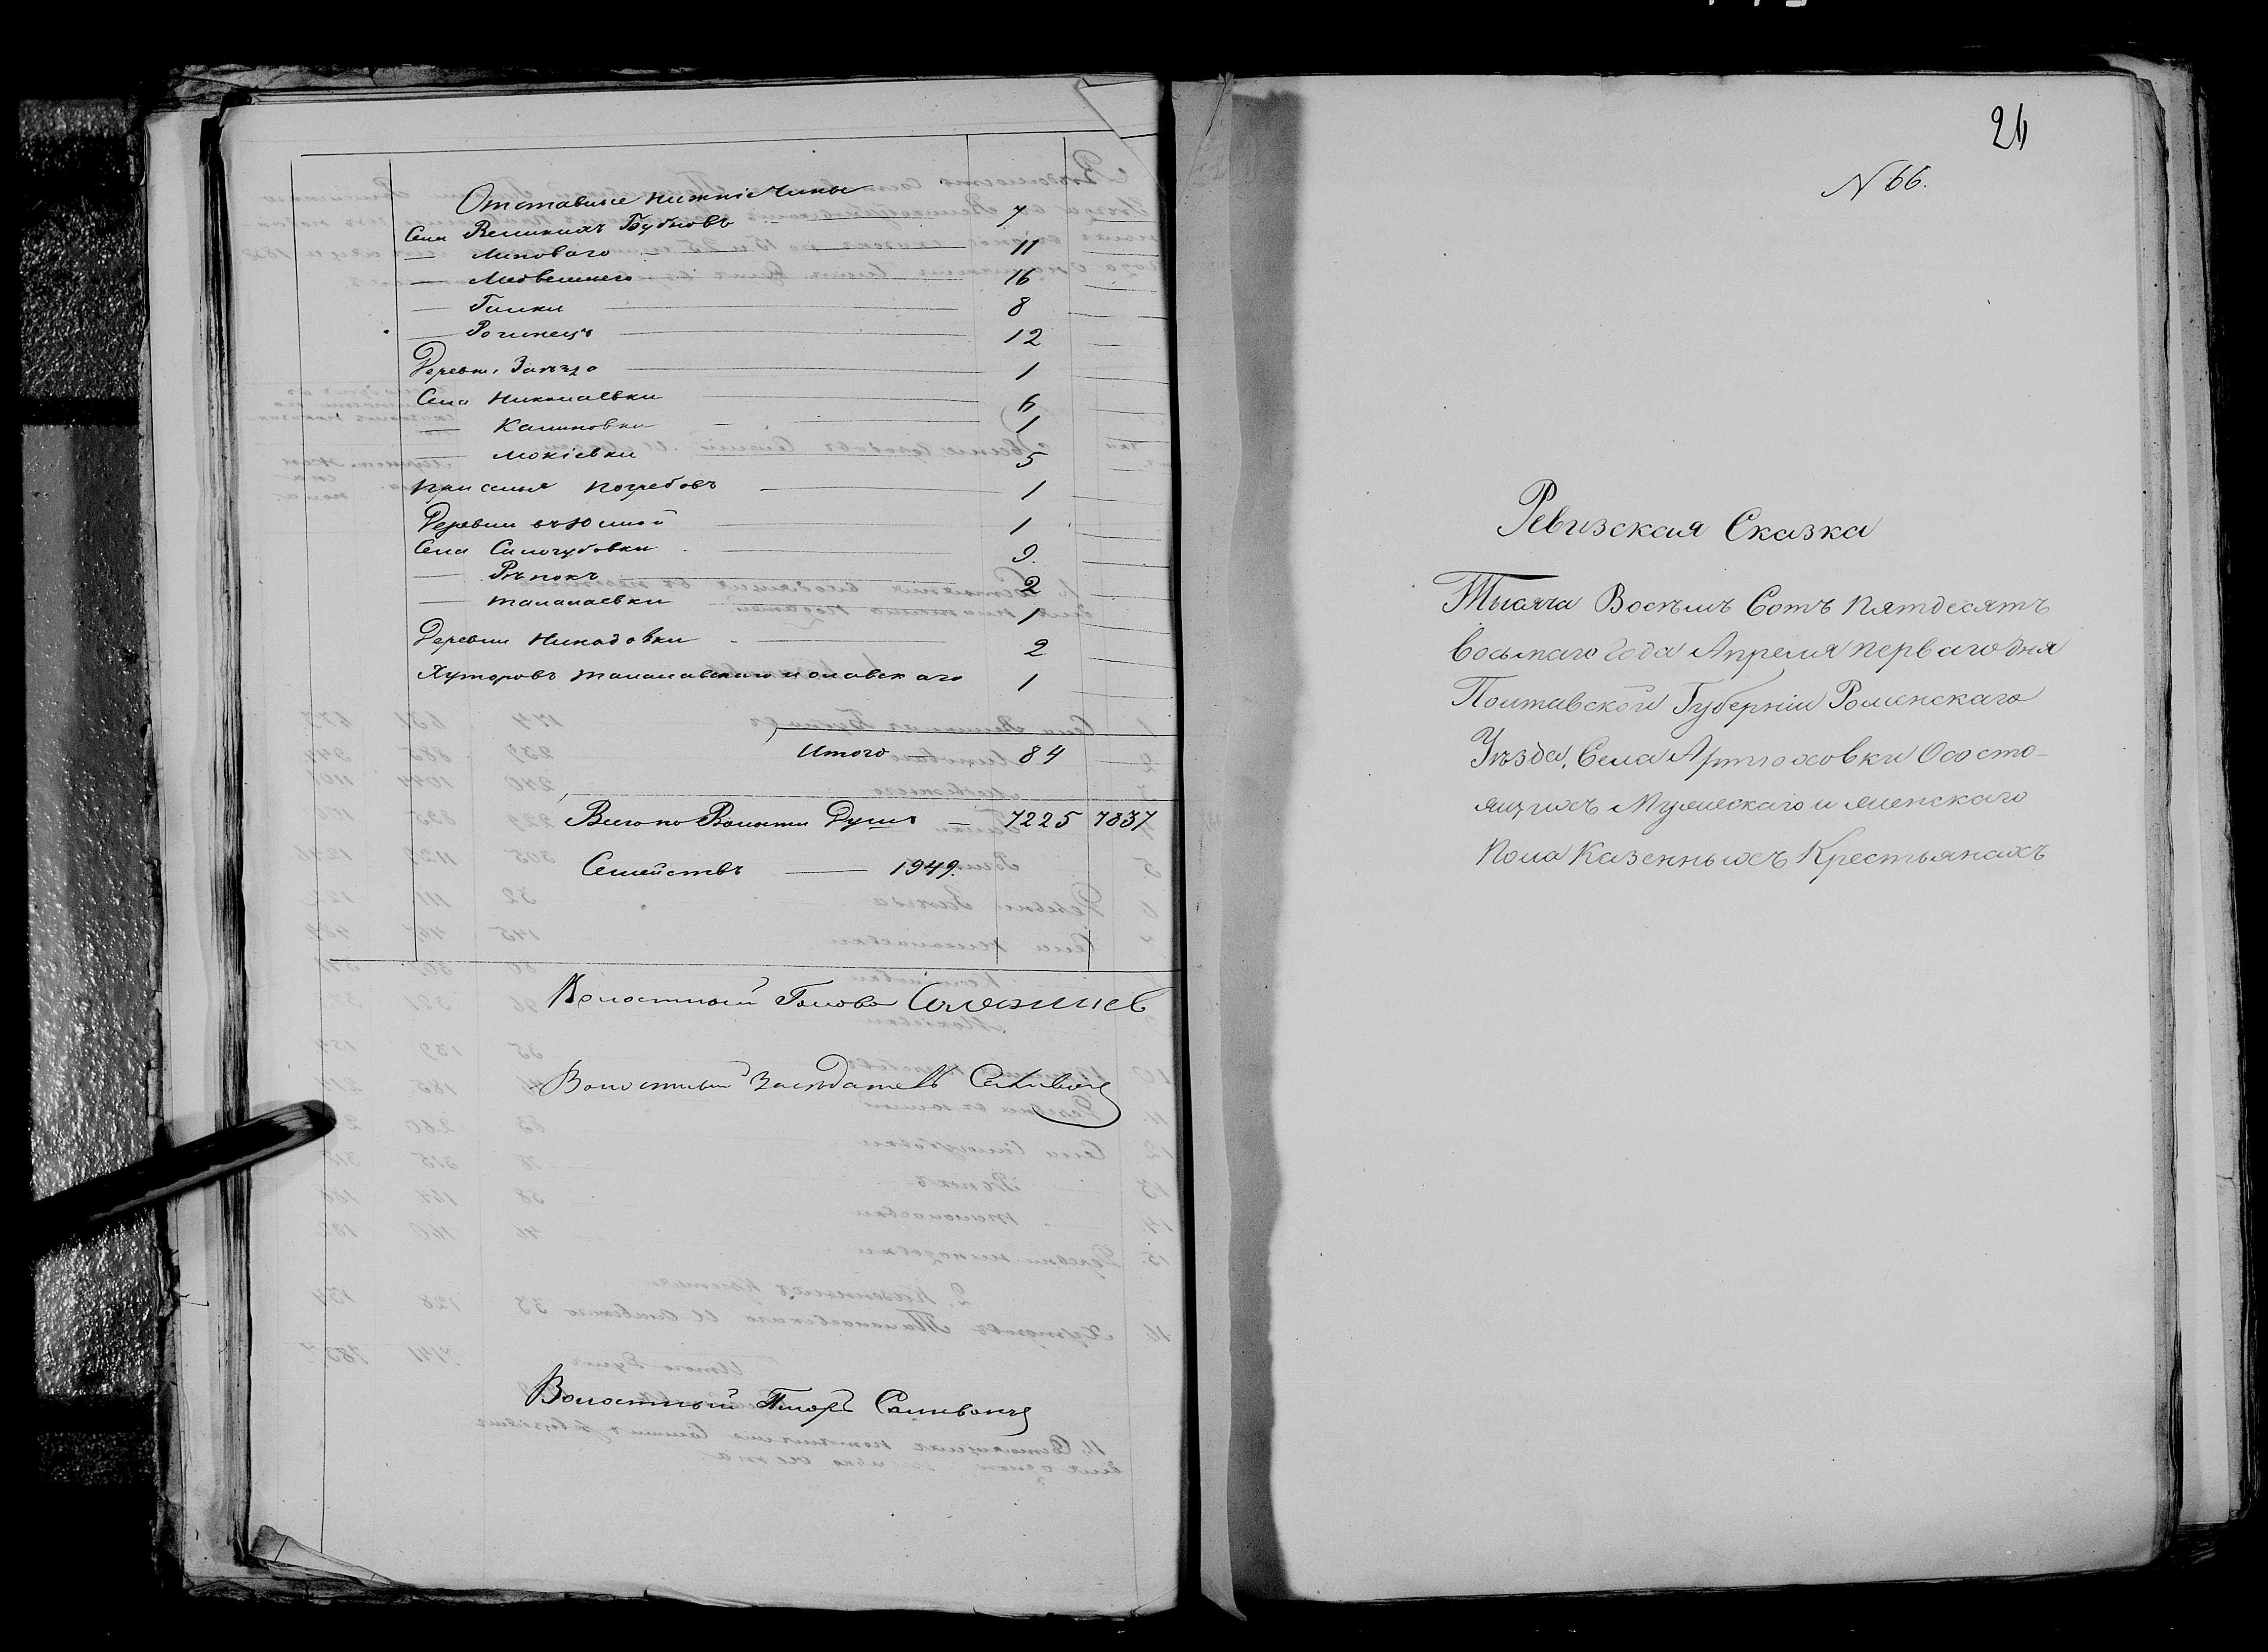 Отставные нижніе Чины
Села Великихъ Бубновъ 7
— Липоваго 11
— Медвежьего 16
— Галки 8
— Рогинецъ 12
Деревни Заезда 1
Села Николаевки 6
— Калиновки 1
— Мокіевки 5
Приселья Погребовъ 1
Деревни вьюнной 1
Села Салогубовки 9
— Рѣпокъ 2
— талалаевки 1
Деревни 2
Хуторовъ талалаевскаго и олавскаго 1
Итого 84
Всего по Волости Душъ — 7225 7837
Семействъ — 1949.
Волостный Голова
Волостный Засѣдатель
Волостный Писарь
26
N 66.
Ревизская Сказка
Тысяча Восемь Сотъ пятдесятъ
восьмаго года Апреля перваго дня
Полтавской Губерніи Роменскаго
Уѣзда, Села Артюховки О состо-
ящихъ Мужескаго и женскаго
пола Казенныхъ Крестьянахъ